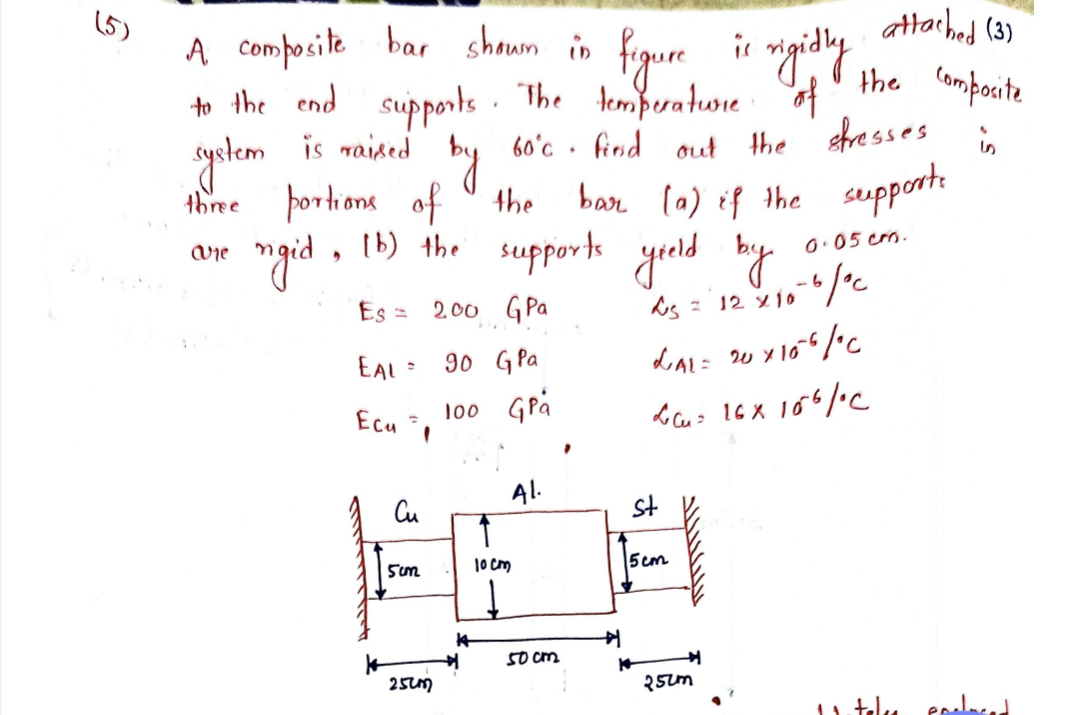 (5)
A composite bar shown in figure is rigidly attached (3)
to the end supports. The temperature of the composite
system is raised by 60°C. find out the stresses in
three portions of the bar (a) if the supports
are rigid, (b) the supports yield by 0.05 cm.
Es = 200 GPa αs = 12 x 10⁻⁶/°C
EAl = 90 GPa αAl = 20 x 10⁻⁶/°C
Ecu = 100 GPa αCu = 16 x 10⁻⁶/°C
Cu Al. St
5cm 10cm 5cm
50 cm
25cm 25cm